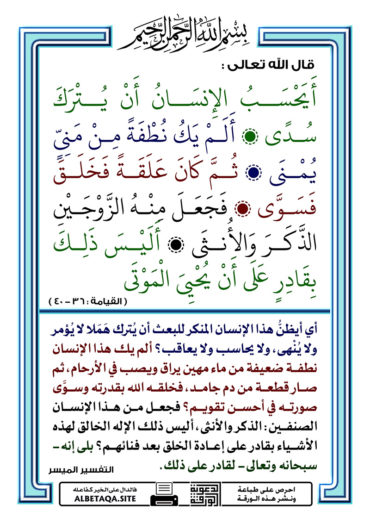 بِسْمِ اللَّهِ الرَّحْمَنِ الرَّحِيمِ
قال الله تعالى :
أَيَحْسَبُ الإِنسَانُ أَنْ يُتْرَكَ
سُدًى ۞ أَلَمْ يَكُ نُطْفَةً مِنْ مَنِيٍّ
يُمْنَى ۞ ثُمَّ كَانَ عَلَقَةً فَخَلَقَ
فَسَوَّى ۞ فَجَعَلَ مِنْهُ الزَّوْجَيْنِ
الذَّكَرَ وَالأُنثَى ۞ أَلَيْسَ ذَلِكَ
بِقَادِرٍ عَلَى أَنْ يُحْيِيَ الْمَوْتَى
( القيامة : ٣٦ - ٤٠ )
أي أيظنُّ هذا الإنسان المنكر للبعث أن يُترك هَمَلا لا يُؤمر
ولا يُنْهى، ولا يحاسب ولا يعاقب؟ ألم يك هذا الإنسان
نطفة ضعيفة من ماء مهين يراق ويصب في الأرحام، ثم
صار قطعة من دم جامد، فخلقه الله بقدرته وسوَّى
صورته في أحسن تقويم؟ فجعل من هذا الإنسان
الصنفين: الذكر والأنثى، أليس ذلك الإله الخالق لهذه
الأشياء بقادر على إعادة الخلق بعد فنائهم؟ بلى إنه -
سبحانه وتعالى - لقادر على ذلك.
التفسير الميسر
احرص على طباعة
ونشر هذه الورقة
الدعوية
الورقة
فالدال على الخير كفاعله
ALBETAQA.SITE